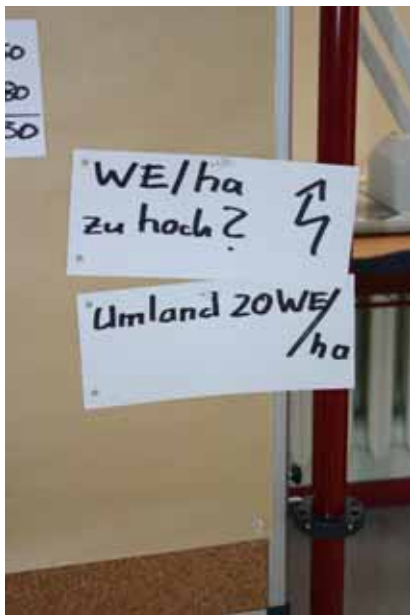 50
WE/ha
zu hoch?
Umland 20 WE/
ha